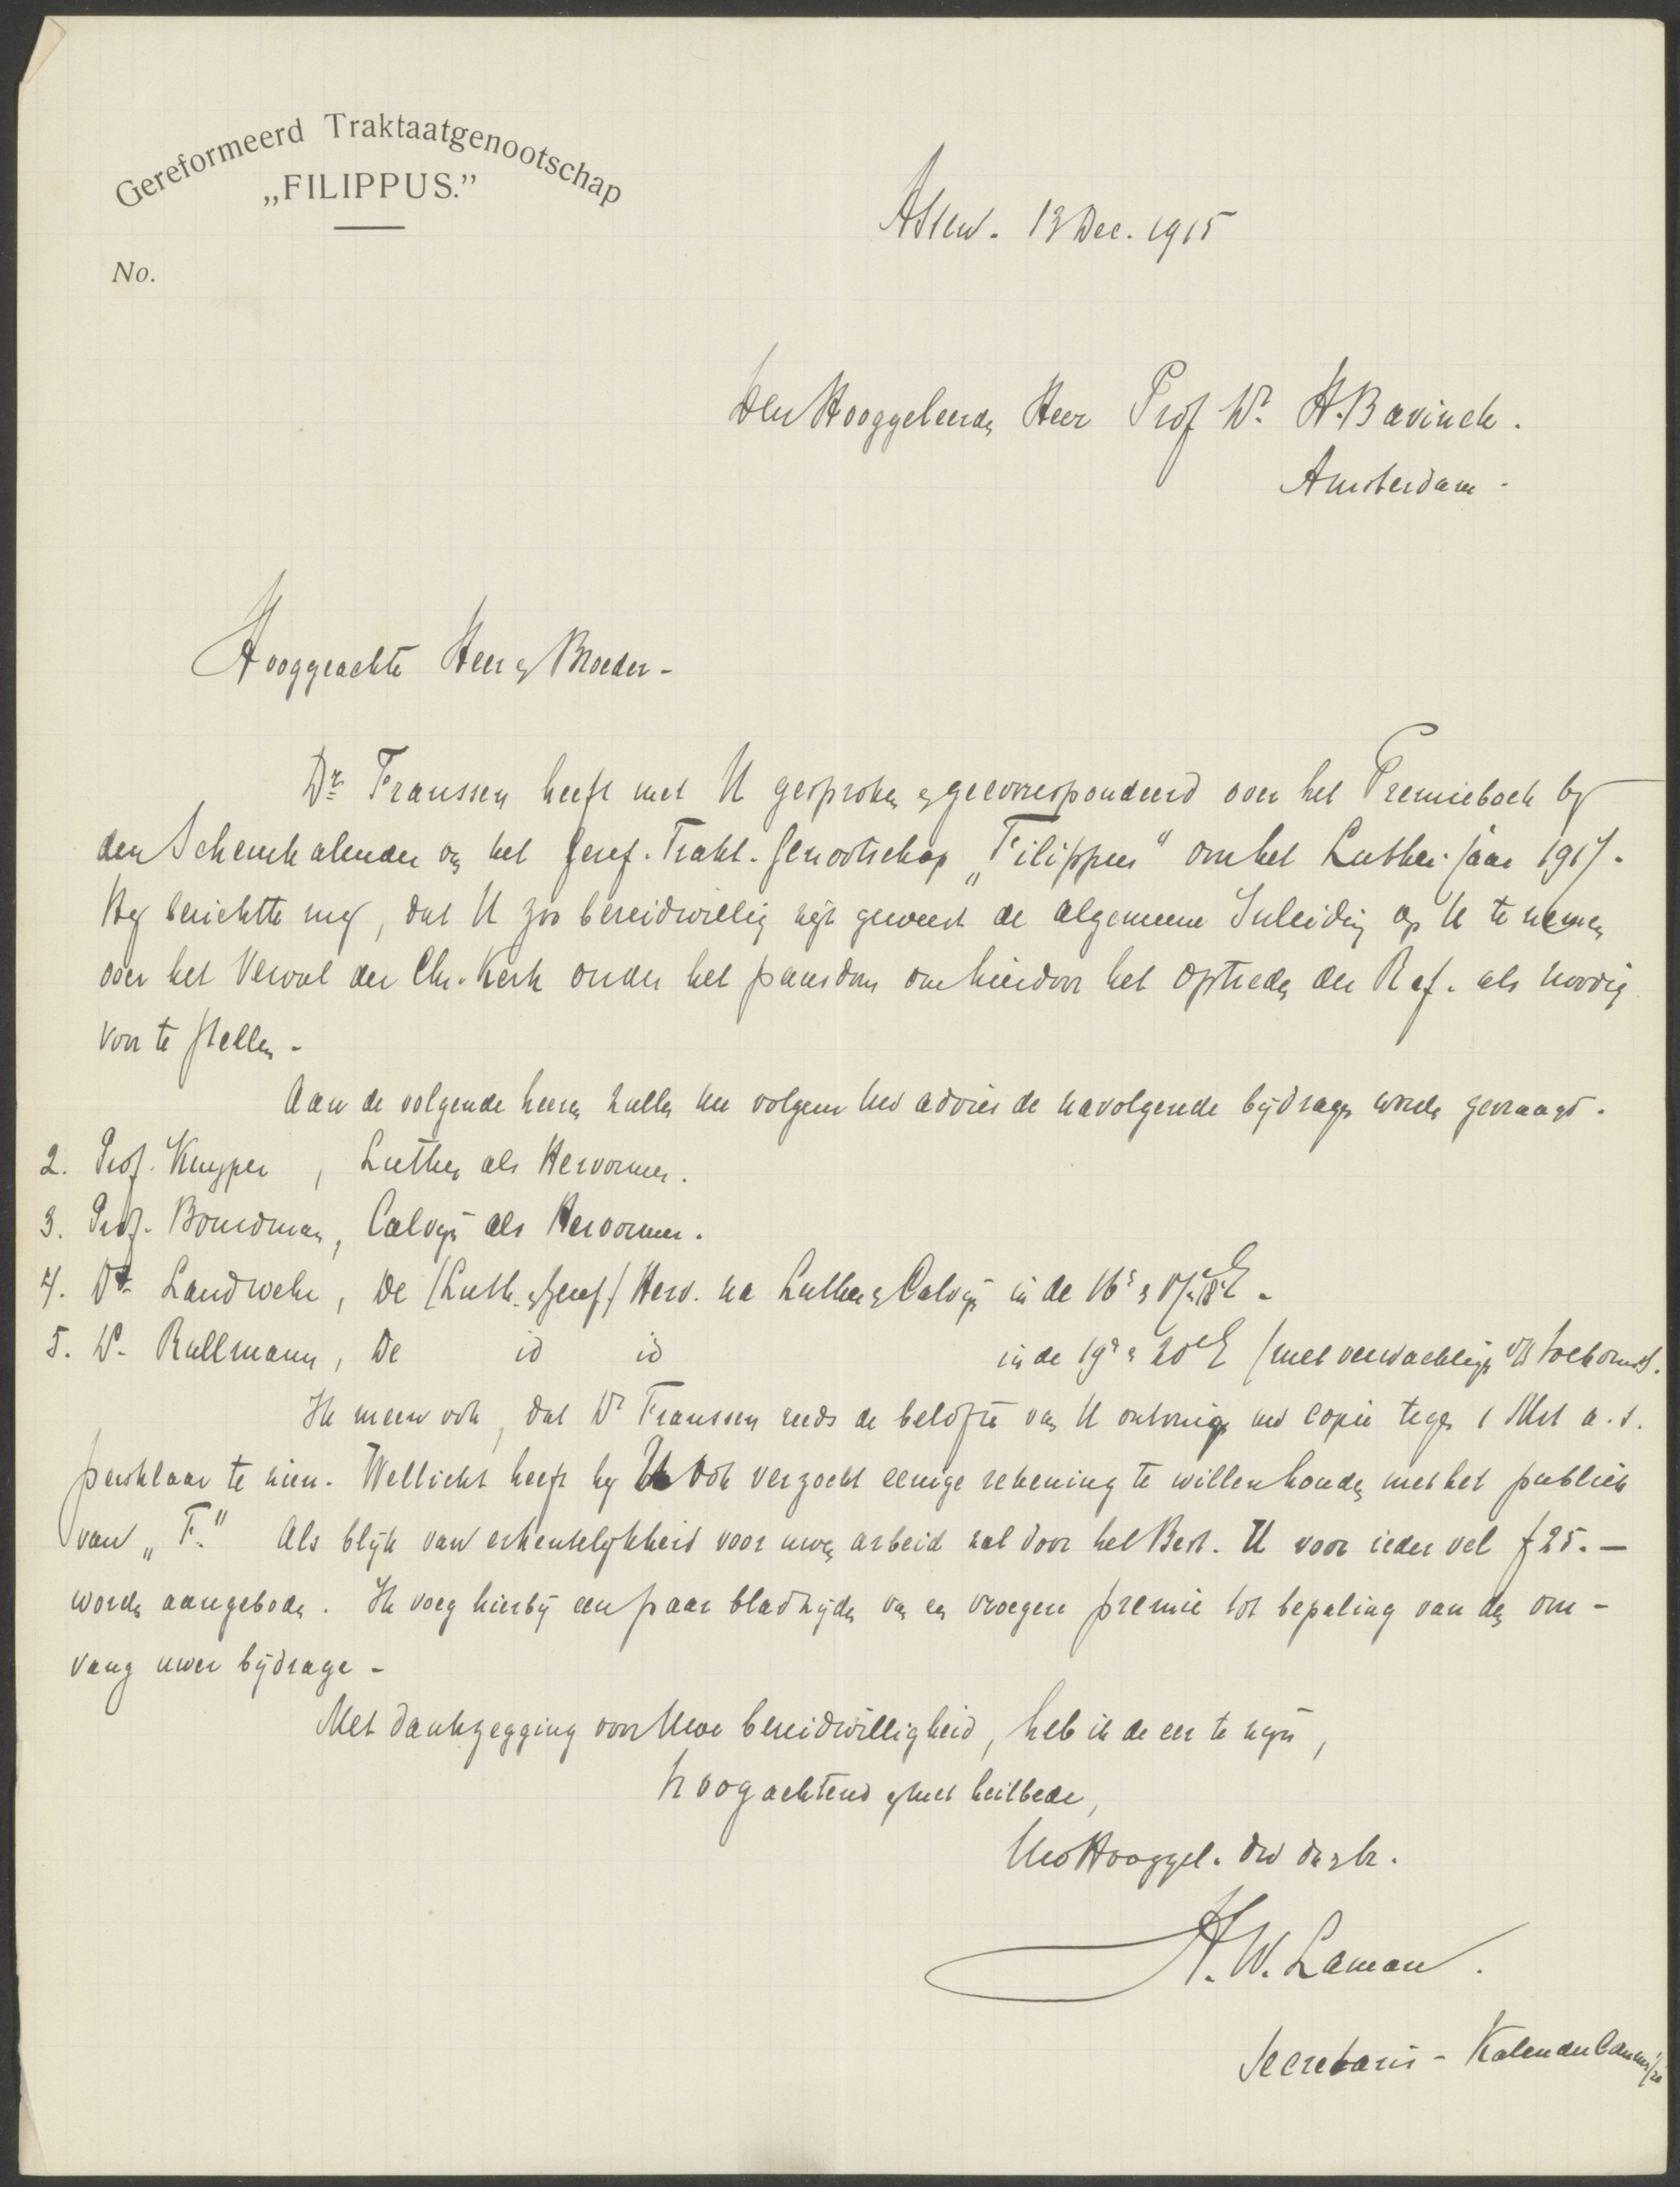 Gereformeerd Traktaatgenootschap
„FILIPPUS.”
No.
Assen. 13 Dec. 1915
Den Hooggeleerden Heer Prof Dr. H. Bavinck.
Amsterdam.
Hooggeachte Heer en Broeder-
Dr. Franssen heeft met U gesproken en gecorrespondeerd over het Premieboek bij
den Scheurkalender van het Geref. Trakt. Genootschap „Filippus" om het Luther-jaar 1917.
Hij berichtte mij, dat U zoo bereidwillig zijt geweest de algemeene Inleiding op U te nemen
over het Verval der Chr. Kerk onder het pausdom om hierdoor het optreden der Ref. als noodig
voor te stellen.
Aan de volgende heeren zullen nu volgens uw advies de navolgende bijdragen worden gevraagd.
2. Prof. Kuyper, Luther als Hervormer.
3. Prof. Bouwman, Calvijn als Hervormer.
4. Dr. Landwehr, De (Luth. en Geref.) Herv. na Luther en Calvijn in de 16e en 17e, 18e E.
5. Ds. Rullmann, De id id in de 19e en 20e E (met verwachtingen v/d toekomst.
Ik meen ook, dat Dr Franssen reeds de belofte van U ontving uw copie tegen 1 Mrt a.s.
persklaar te zien. Wellicht heeft hij U ook verzocht eenige rekening te willen houden met het publiek
van „F." Als blijk van erkentelijkheid voor uwen arbeid zal door het Best. U voor ieder vel f 25.—
worden aangeboden. Ik voeg hierbij een paar bladzijden van een vroegere premie tot bepaling van den om-
vang uwer bijdrage-
Met dankzegging voor Uwe bereidwilligheid, heb ik de eer te zijn,
hoogachtend en met heilbede,
Uw Hooggel. dw dr en br.
H. W. Laman.
Secretaris - Kalender Commissie